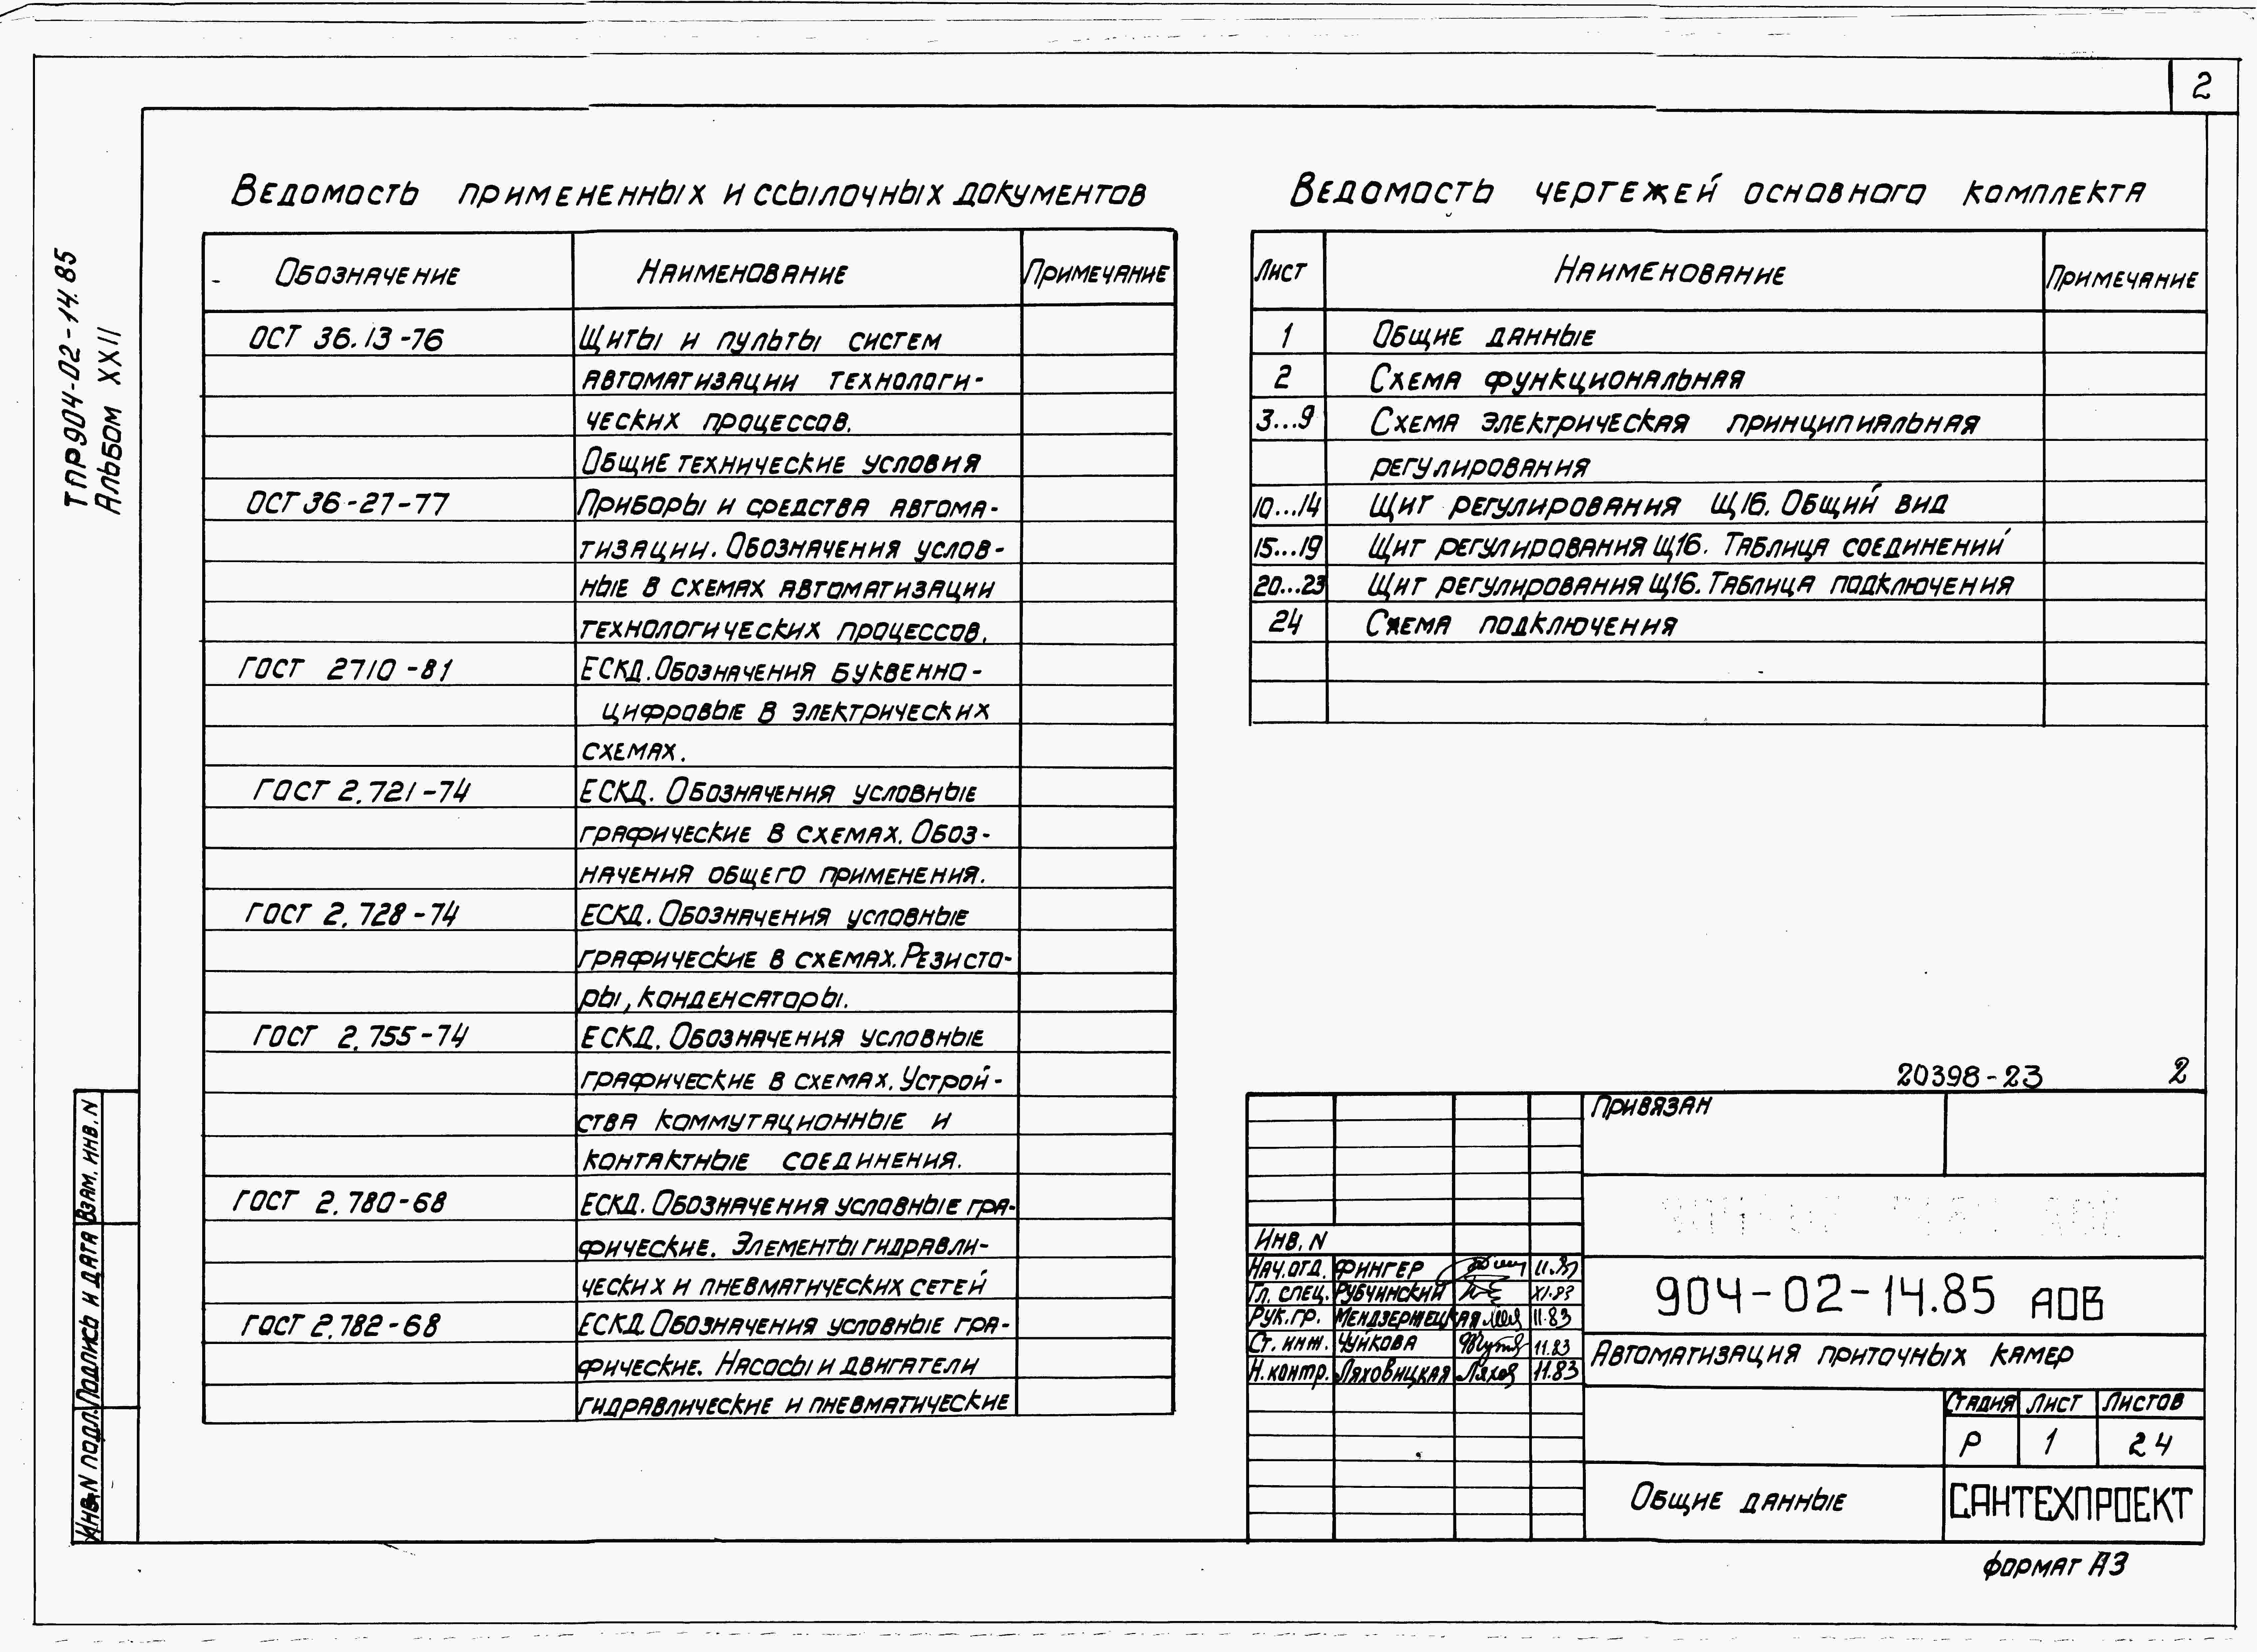 2
ТПР904-02-14.85
Альбом XXII
Ведомость примененных и ссылочных документов
Обозначение Наименование Примечание
ОСТ 36.13-76 Щиты и пульты систем
автоматизации технологи-
ческих процессов.
Общие технические условия
ОСТ 36-27-77 Приборы и средства автома-
тизации. Обозначения услов-
ные в схемах автоматизации
технологических процессов.
ГОСТ 2710-81 ЕСКД. Обозначения буквенно-
цифровые в электрических
схемах.
ГОСТ 2.721-74 ЕСКД. Обозначения условные
графические в схемах. Обоз-
начения общего применения.
ГОСТ 2.728-74 ЕСКД. Обозначения условные
графические в схемах. Резисто-
ры, конденсаторы.
ГОСТ 2.755-74 ЕСКД. Обозначения условные
графические в схемах. Устрой-
ства коммутационные и
контактные соединения.
ГОСТ 2.780-68 ЕСКД. Обозначения условные гра-
фические. Элементы гидравли-
ческих и пневматических сетей
ГОСТ 2.782-68 ЕСКД. Обозначения условные гра-
фические. Насосы и двигатели
гидравлические и пневматические
Ведомость чертежей основного комплекта
Лист Наименование Примечание
1 Общие данные
2 Схема функциональная
3...9 Схема электрическая принципиальная
регулирования
10...14 Щит регулирования Щ16. Общий вид
15...19 Щит регулирования Щ16. Таблица соединений
20...23 Щит регулирования Щ16. Таблица подключения
24 Схема подключения
20398-23 2
Привязан
Инв. N
Нач. отд. Фингер 11.83
Гл. спец. Рубчинский XI.83
Рук. гр. Мендзержецкая 11.83
Ст. инж. Чуйкова 11.83
Н. контр. Ляховицкая Ляхов 11.83
904-02-14.85 АОВ
Автоматизация приточных камер
Стадия Лист Листов
Р 1 24
Общие данные
САНТЕХПРОЕКТ
формат А3
Взам. инв. N
Подпись и дата
Инв. N подл.